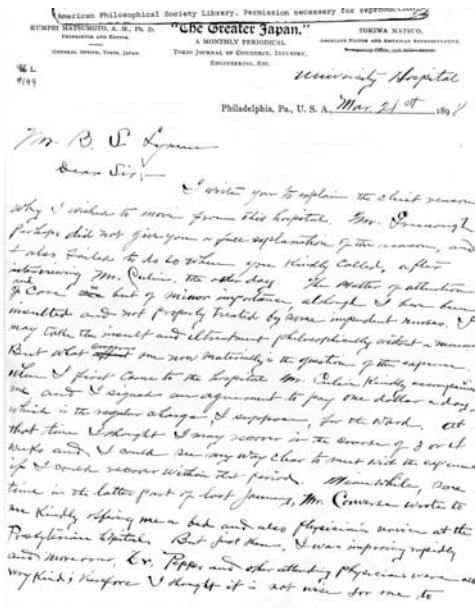 American Philosophical Society Library. Permission necessary for
KUMPEI MATSUMOTO, A. M., Ph. D.
PROPRIETOR AND EDITOR.
GENERAL OFFICE, TOKIO, JAPAN.
"The Greater Japan,"
A MONTHLY PERIODICAL
TOKIO JOURNAL OF COMMERCE, INDUSTRY,
ENGINEERING, ETC.
TOKIWA MATSUO,
ASSOCIATE EDITOR AND AMERICAN REPRESENTATIVE,
University Hospital
Philadelphia, Pa., U. S. A., Mar. 21st 189
Mr. B. S. Lyman
Dear Sir;-
I write you to explain the chief reason
why I wished to move from this hospital. Mr.
perhaps did not give you a full explanation of the reason, and
I also failed to do so when you kindly called, after
interviewing Mr. Culin, the other day. The matter of attention
and care but of minor importance, although I have been
insulted and not properly treated by some impudent nurses. I
may take the insult and illtreatment philosophically without a murmur
But what concerns me now materially is the question of the expense.
When I first came to the hospital Mr. Culin kindly accompanied
me and I signed an agreement to pay one dollar a day,
which is the regular charge, I suppose, for the ward. At
that time I thought I may recover in the course of 3 or 4
weeks and I could see my way clear to meet with the expense
if I could recover within that period. Meanwhile, some
time in the latter part of last January, Mr. Converse wrote to
me kindly offering me a bed and also physician's service at the
Presbyterian Hospital. But just then, I was improving rapidly
and moreover, Dr. Pepper and other attending physicians were all
very kind; therefore I thought it is not wise for me to